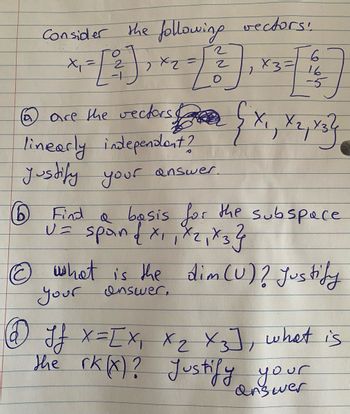 Consider the following vectors:
x₁ = [0 2 -1], x₂ = [2 2 0], x₃ = [6 16 -5]
(a) are the vectors {x₁, x₂, x₃}
linearly independent?
Justify your answer.
(b) Find a basis for the subspace
U = span{x₁, x₂, x₃}
(c) what is the dim(U)? Justify
your answer.
(d) If X=[x₁ x₂ x₃], what is
the rk(X)? Justify your
answer